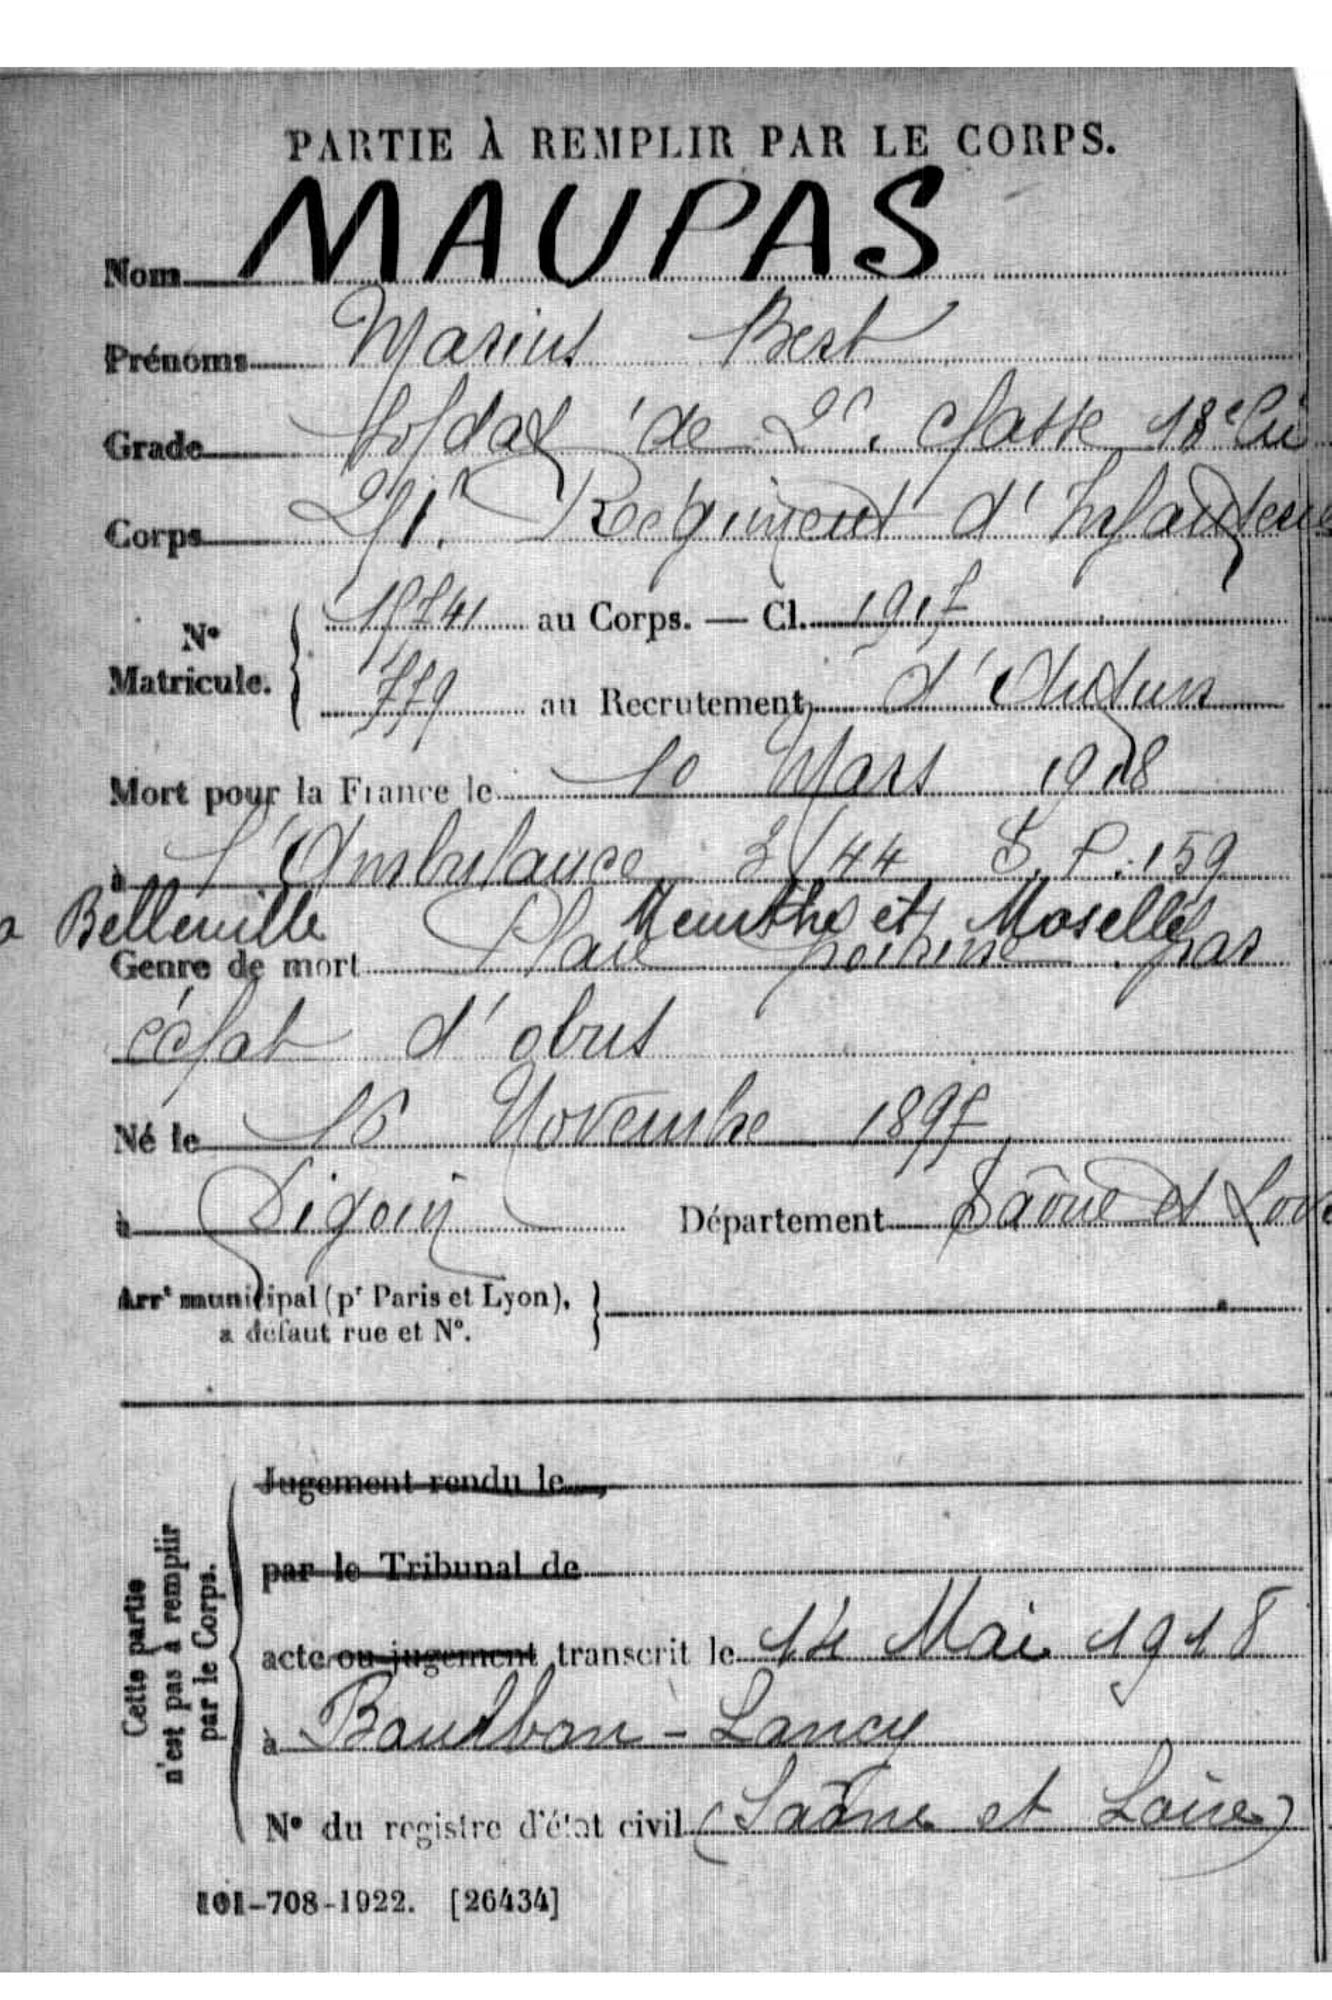 PARTIE À REMPLIR PAR LE CORPS.
Nom MAUPAS
Prénoms Marius Bert
Grade Soldat de 2e. classe 18e Cie
Corps Régiment d'Infanterie
N° Matricule.
au Corps. — Cl. 1917
779 au Recrutement d'Autun
Mort pour la France le 10 Mars 1918
à l'Ambulance 3/44 S. P. 159
a Belleville Meurthe et Moselle
Genre de mort Plaie poitrine par
éclat d'obus
Né le 16 Novembre 1897
à Digoin Département Saône et Loire
Arrt municipal (pr Paris et Lyon),
a défaut rue et N°.
Cette partie
n'est pas à remplir
par le Corps.
Jugement rendu le
par le Tribunal de
acte ou jugement transcrit le 14 Mai 1918
à Bourbon-Lancy
N° du registre d'état civil (Saône et Loire)
101-708-1922. [26434]